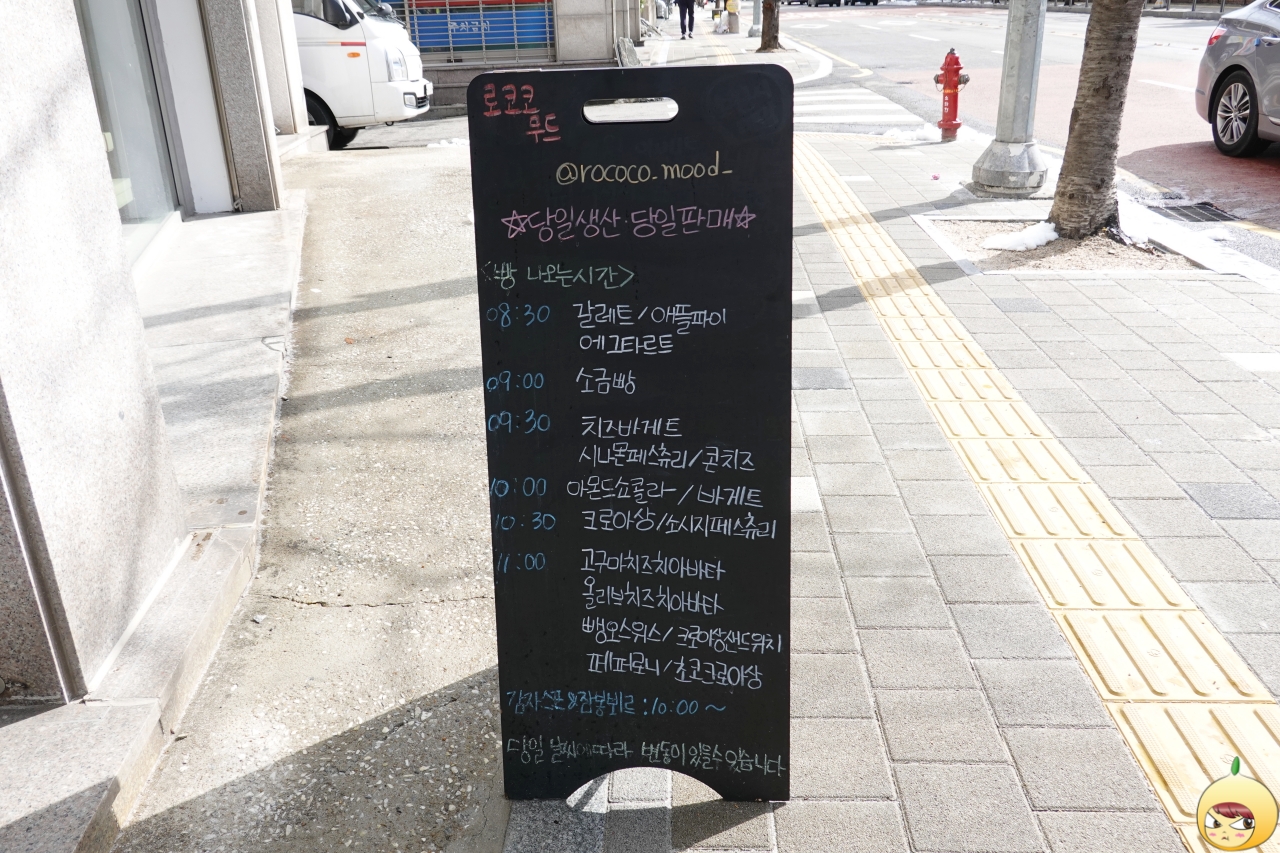 주차금지
로코코
무드
@rococo_mood_
☆당일생산·당일판매☆
<빵 나오는시간>
08:30 갈레트/애플파이
에그타르트
09:00 소금빵
09:30 치즈바게트
시나몬페스츄리/콘치즈
10:00 아몬드쇼콜라/바게트
10:30 크로아상/소시지페스츄리
11:00 고구마치즈치아바타
올리브치즈치아바타
뺑오스위스/크로아상샌드위치
페퍼로니/초코크로아상
감자스프&잠봉뵈르:10:00~
당일 날씨에따라 변동이있을수있습니다